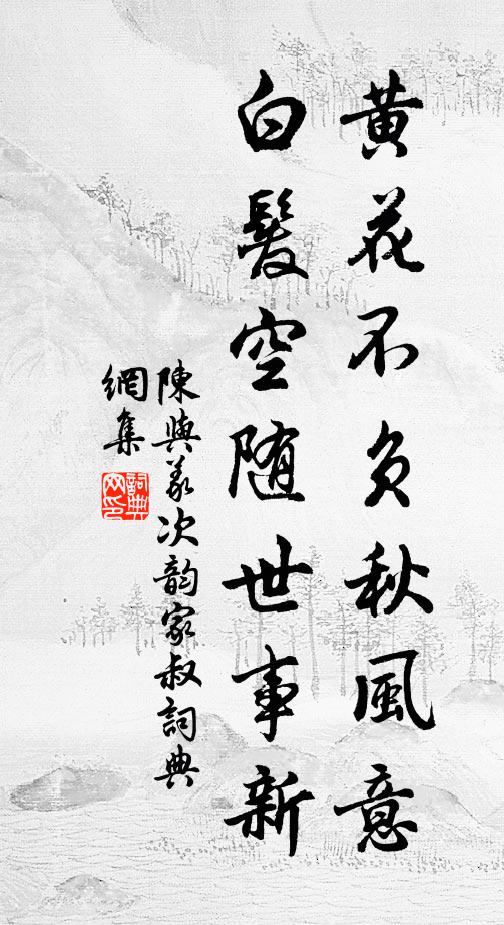 黄花不負秋風意
白髮空随世事新
陳與義次韵家叔詞典
網集
詞典
网印